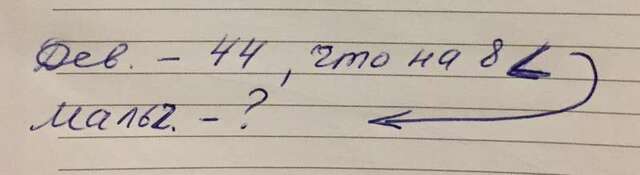 Дев. - 44, что на 8 <
Мальч. - ?